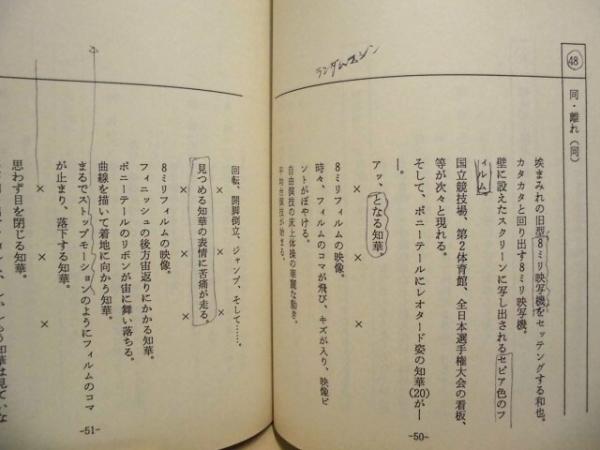 48
同・離れ(同)
埃まみれの旧型8ミリ映写機をセッテングする和也。
カタカタと回り出す8ミリ映写機。
壁に設えたスクリーンに写し出されるセピア色のフ
ィルム。
国立競技場、第2体育館、全日本選手権大会の看板、
等が次々と現れる。
そして、ポニーテールにレオタード姿の知華(20)が―
―。
アッ、となる知華。
× × ×
8ミリフィルムの映像。
時々、フィルムのコマが飛び、キズが入り、映像ピ
ントがぼやける。
自由演技の床上体操の華麗な動き。
平均台演技が始まる。
-50-
回転、開脚倒立、ジャンプ、そして……。
× × ×
見つめる知華の表情に苦痛が走る。
× × ×
8ミリフィルムの映像。
フィニッシュの後方宙返りにかかる知華。
ポニーテールのリボンが宙に舞い落ちる。
曲線を描いて着地に向かう知華。
まるでストップモーションのようにフィルムのコマ
が止まり、落下する知華。
× × ×
思わず目を閉じる知華。
-51-